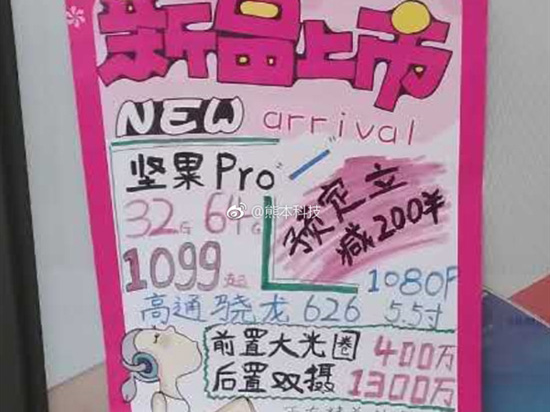 新品上市
NEW arrival
坚果Pro
32G 64G
预定立
减200半
@熊本科技
1099起
1080P
高通骁龙626 5.5寸
前置大光圈 400万
后置双摄 1300万